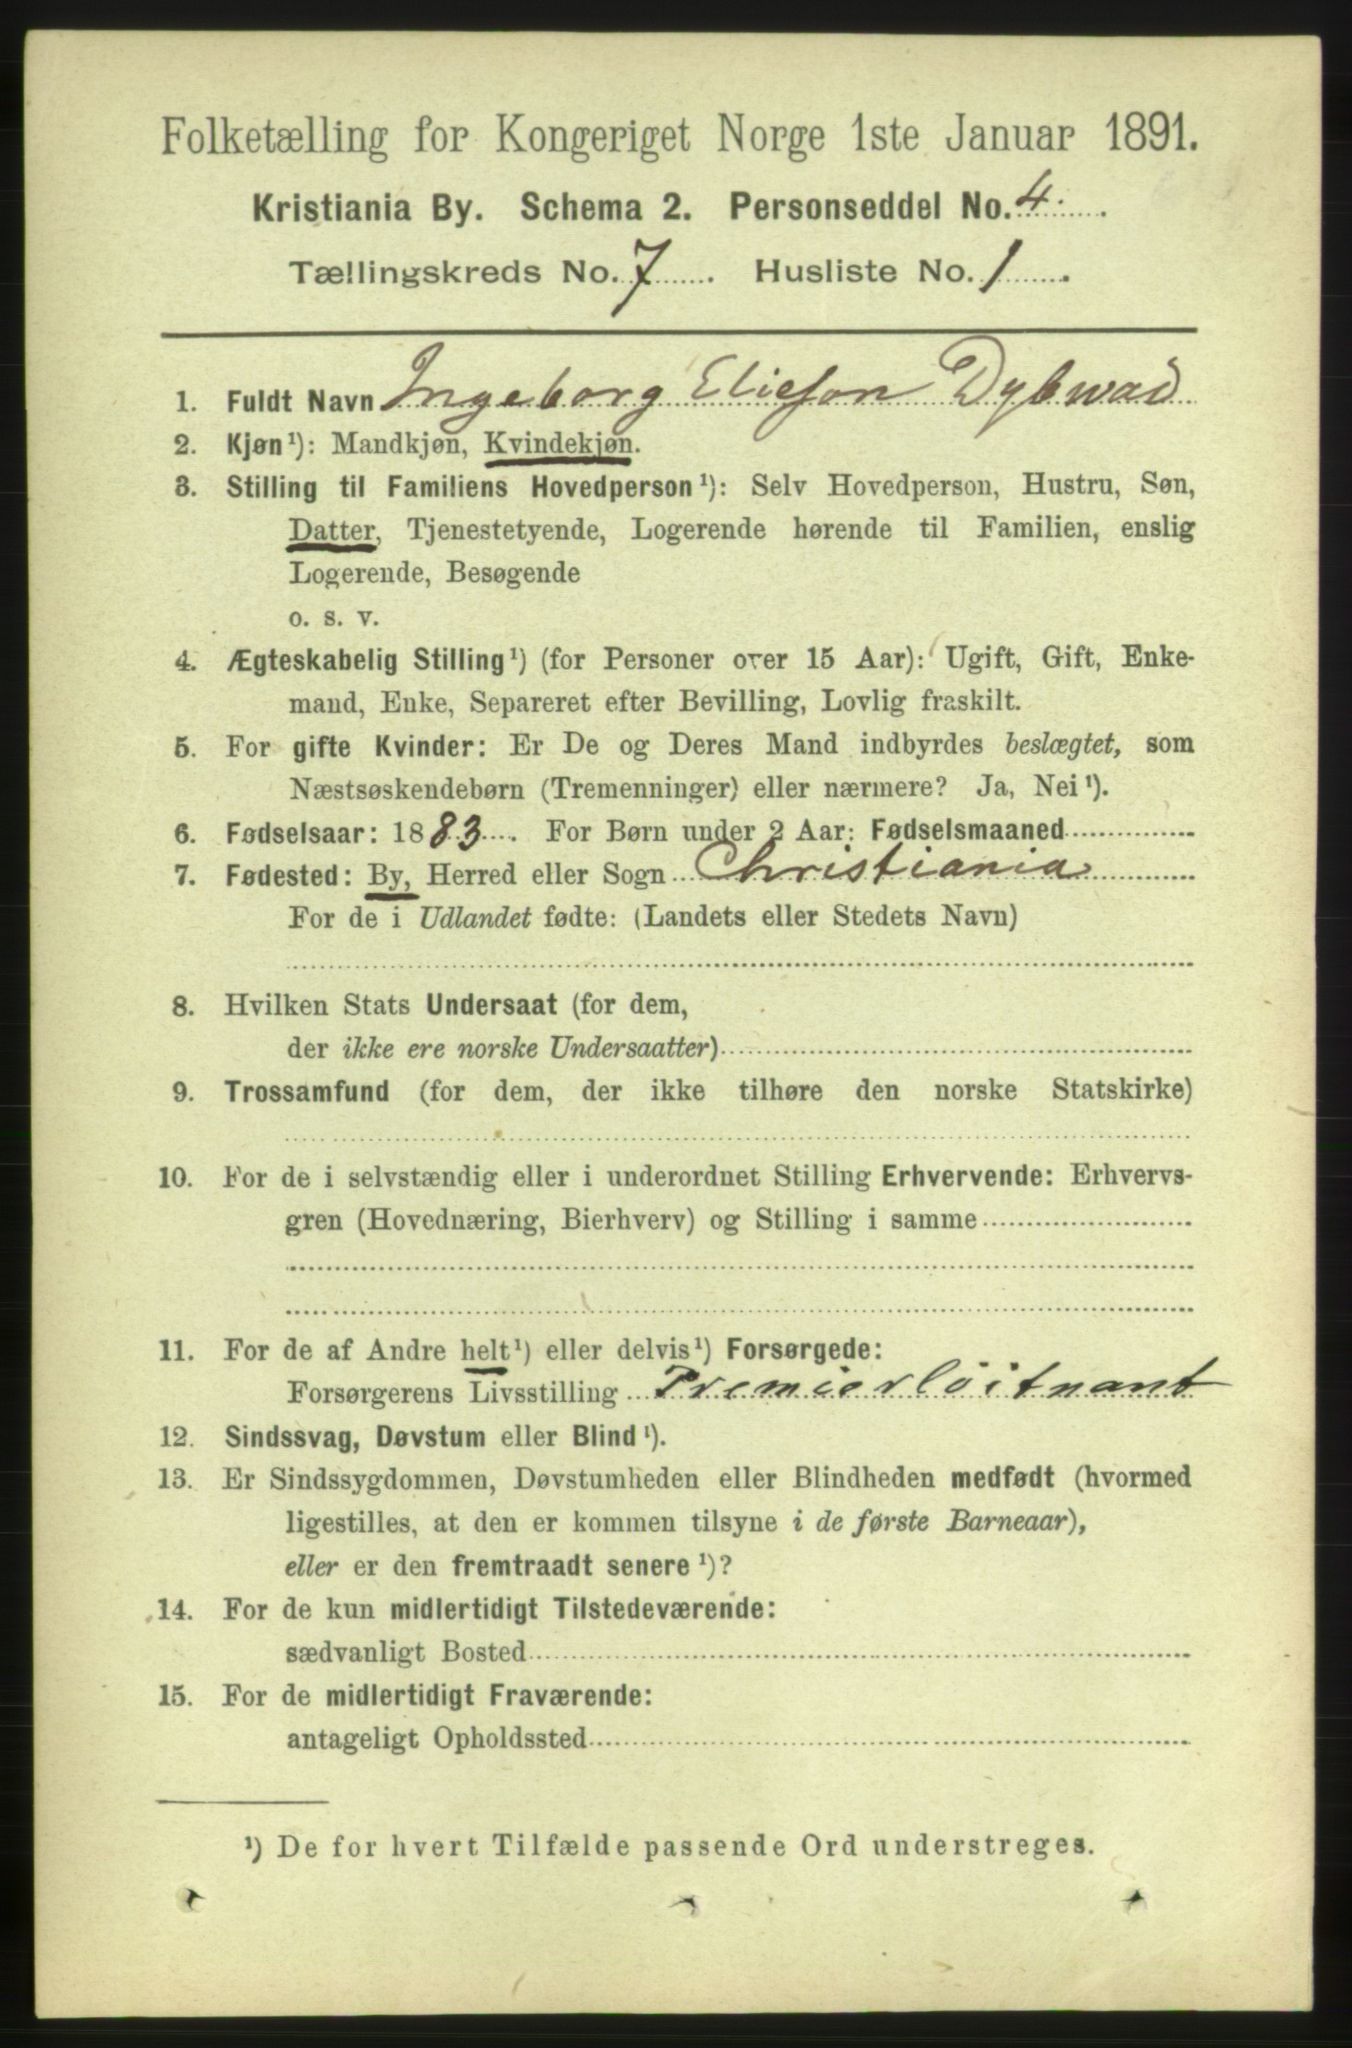 Folketælling for Kongeriget Norge 1ste Januar 1891.
Kristiania By. Schema 2. Personseddel No. 4.
Tællingskreds No. 7. Husliste No. 1.
1. Fuldt Navn Ingeborg Elieson Dybwad
2. Kjøn¹): Mandkjøn, Kvindekjøn.
3. Stilling til Familiens Hovedperson¹): Selv Hovedperson, Hustru, Søn,
Datter, Tjenestetyende, Logerende hørende til Familien, enslig
Logerende, Besøgende
o. s. v.
4. Ægteskabelig Stilling¹) (for Personer over 15 Aar): Ugift, Gift, Enke-
mand, Enke, Separeret efter Bevilling, Lovlig fraskilt.
5. For gifte Kvinder: Er De og Deres Mand indbyrdes beslægtet, som
Næstsøskendebørn (Tremenninger) eller nærmere? Ja, Nei¹).
6. Fødselsaar: 1883. For Børn under 2 Aar: Fødselsmaaned
7. Fødested: By, Herred eller Sogn Christiania
For de i Udlandet fødte: (Landets eller Stedets Navn)
8. Hvilken Stats Undersaat (for dem,
der ikke ere norske Undersaatter)
9. Trossamfund (for dem, der ikke tilhøre den norske Statskirke)
10. For de i selvstændig eller i underordnet Stilling Erhvervende: Erhvervs-
gren (Hovednæring, Bierhverv) og Stilling i samme
11. For de af Andre helt¹) eller delvis¹) Forsørgede:
Forsørgerens Livsstilling Premierløitnant
12. Sindssvag, Døvstum eller Blind¹).
13. Er Sindssygdommen, Døvstumheden eller Blindheden medfødt (hvormed
ligestilles, at den er kommen tilsyne i de første Barneaar),
eller er den fremtraadt senere¹)?
14. For de kun midlertidigt Tilstedeværende:
sædvanligt Bosted
15. For de midlertidigt Fraværende:
antageligt Opholdssted
¹) De for hvert Tilfælde passende Ord understreges.